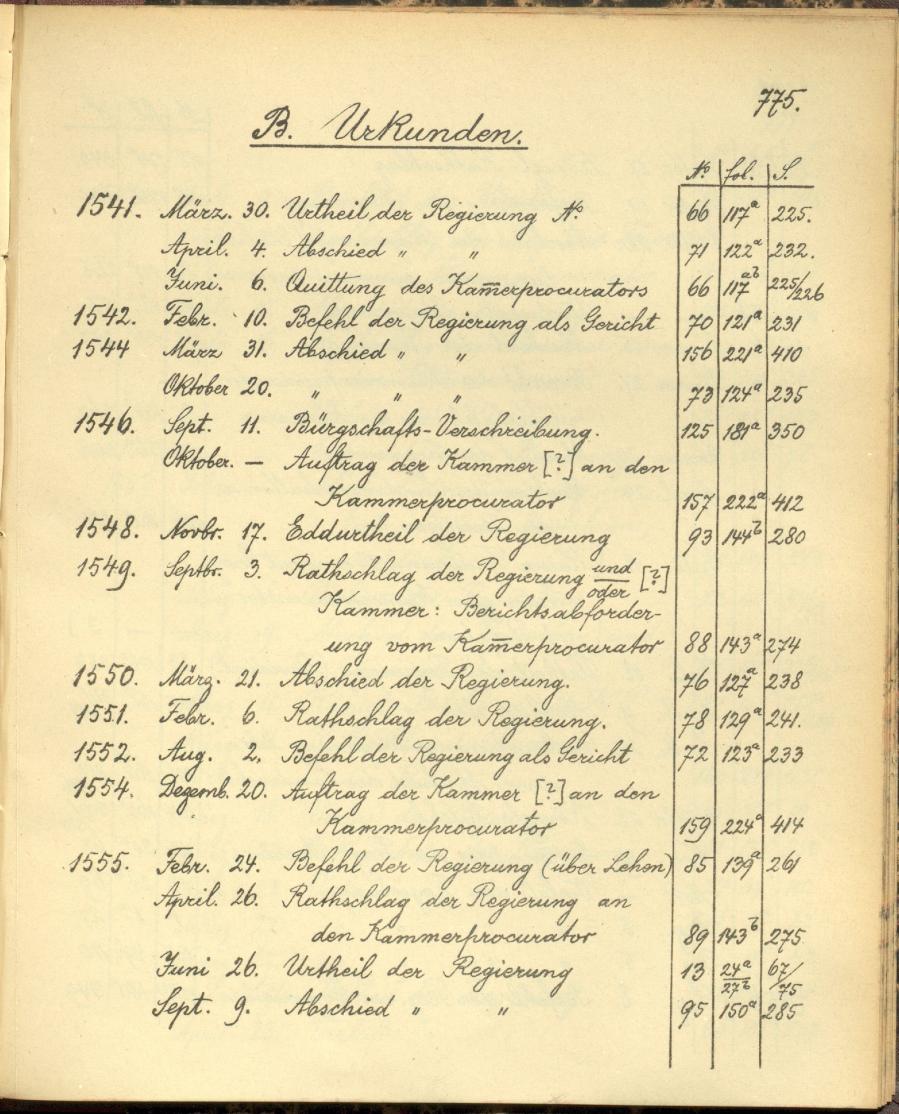 775.
B. Urkunden.
No fol. S.
1541. März. 30. Urtheil der Regierung No 66 117a 225.
April. 4. Abschied " " 71 122a 232.
Juni. 6. Quittung des Kam̅erprocurators 66 117ab 225/226
1542. Febr. 10. Befehl der Regierung als Gericht 70 121a 231
1544 März 31. Abschied " " 156 221a 410
Oktober 20. " " " 73 124a 235
1546. Sept. 11. Bürgschafts-Verschreibung. 125 181a 350
Oktober. — Auftrag der Kammer [?] an den
Kammerprocurator 157 222a 412
1548. Novbr. 17. Eddurtheil der Regierung 93 144b 280
1549. Septbr. 3. Rathschlag der Regierung und/oder [?]
Kammer: Berichtsabforder-
ung vom Kam̅erprocurator 88 143a 274
1550. März. 21. Abschied der Regierung. 76 127a 238
1551. Febr. 6. Rathschlag der Regierung. 78 129a 241.
1552. Aug. 2. Befehl der Regierung als Gericht 72 123a 233
1554. Dezemb. 20. Auftrag der Kammer [?] an den
Kammerprocurator 159 224a 414
1555. Febr. 24. Befehl der Regierung (über Lehen) 85 139a 261
April. 26. Rathschlag der Regierung an
den Kammerprocurator 89 143b 275
Juni 26. Urtheil der Regierung 13 24a/27b 67/75
Sept. 9. Abschied " " 95 150a 285